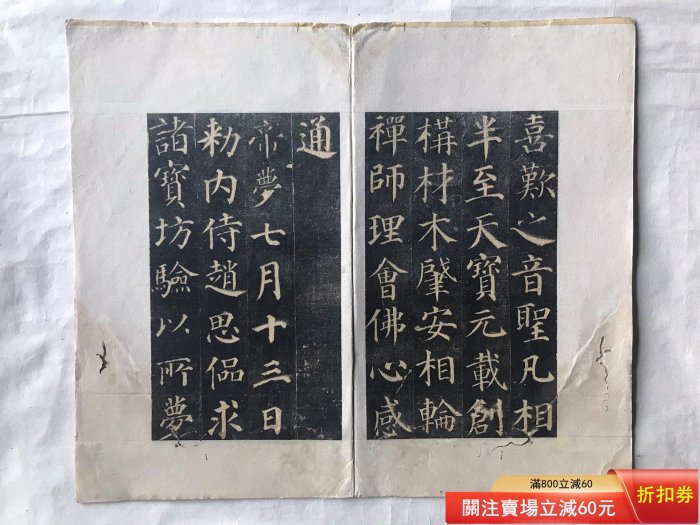 喜歎之音聖凡相
半至天寶元載創
構材木肇安相輪
禪師理會佛心感
通
帝夢七月十三日
勅內侍趙思偘求
諸寶坊驗以所夢
滿800立減60
關注賣場立減60元
折扣券